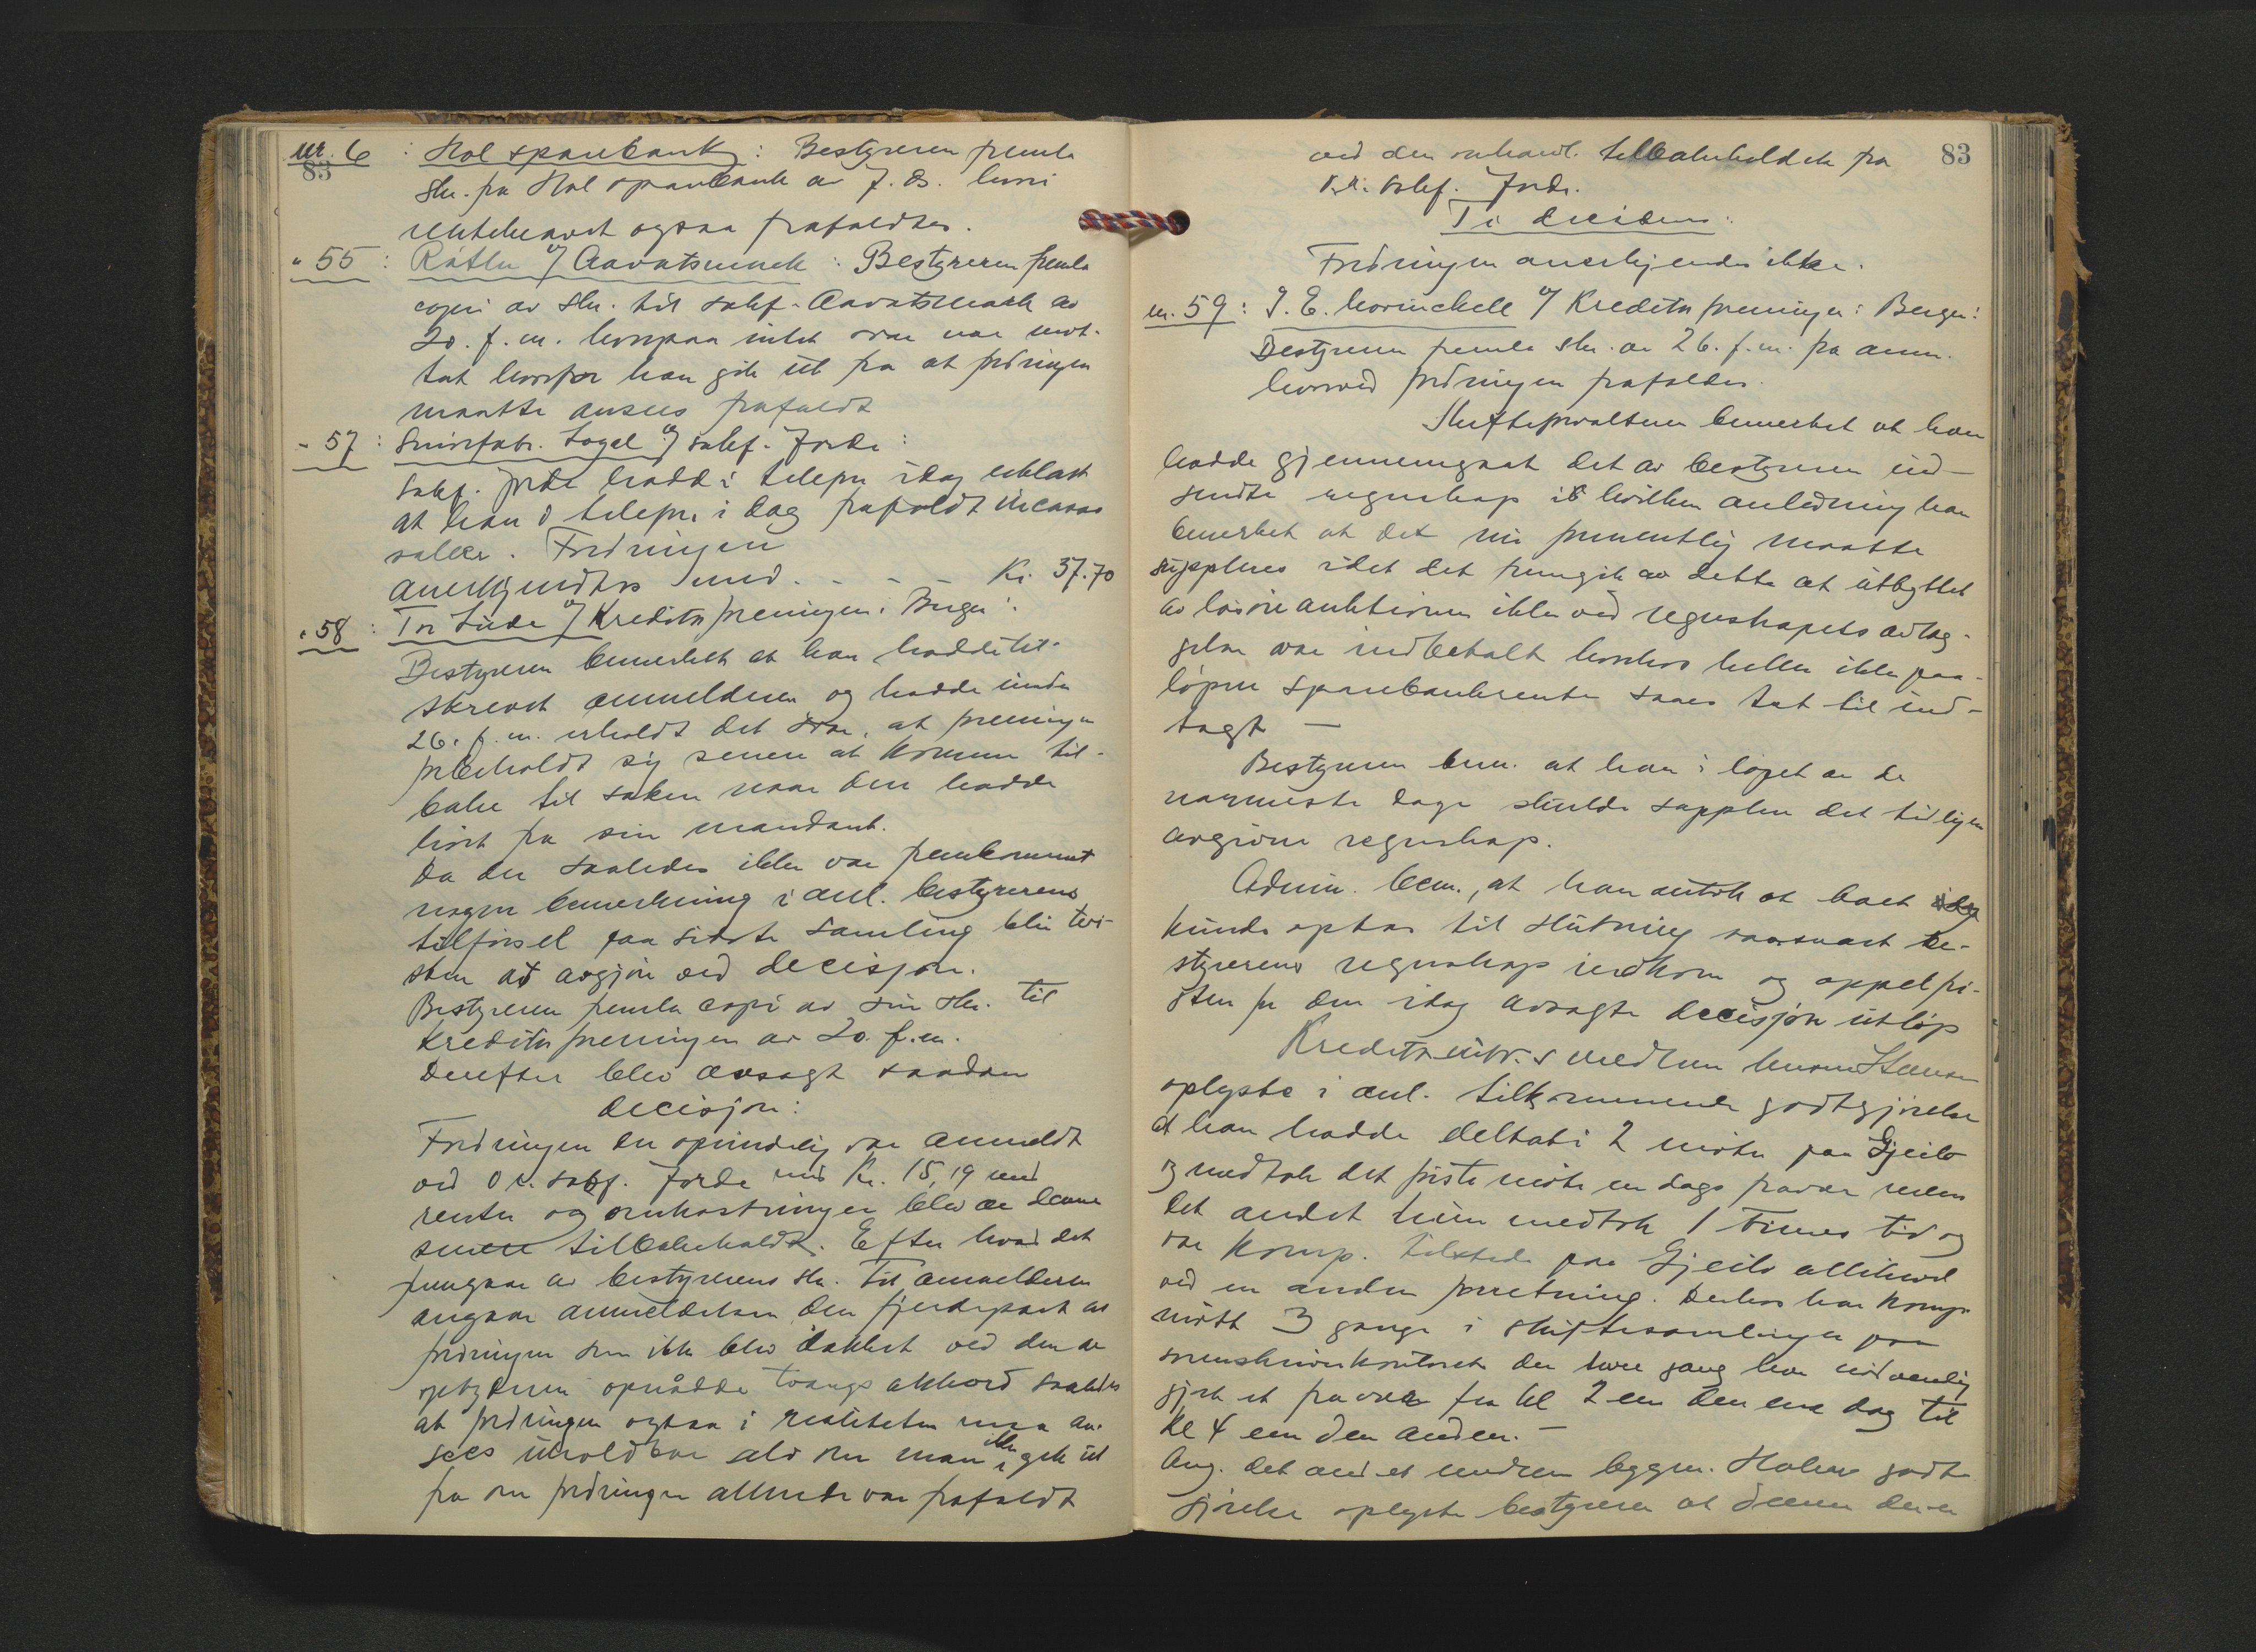 nr. 6 : Hol sparebank : Bestyreren fremla
83
skr. fra Hol sparebank av 7. ds. hvori
rentekravet ogsaa frafaldtes.
" 55 : Ratler v/ Aavatsmark : Bestyreren fremla
copi av skr. til sakf. Aavatsmark av
20. f. m. hvorpaa intet svar var mot-
tat hvorfor han gik ut fra at fordringen
maatte ansees frafaldt
" 57 : Snirefabr. Logel v/ sakf. Jorde :
sakf. Jorde hadde i telefon idag uttalt
at han i telefon i dag frafaldt incasso
salær. Fordringen
anerkjendtes med - - - Kr. 37.70
" 58 : Tor Lude v/ Kreditorforeningen i Bergen :
Bestyreren bemerket at han hadde til-
skrevet anmelderen og hadde under
26. f. m. erholdt det svar, at foreningen
forbeholdt sig senere at komme til-
bake til saken naar den hadde
hørt fra sin mandant.
Da der saaledes ikke var fremkommet
nogen bemerkning i anl. bestyrerens
tilførsel paa sidste samling blir tvi-
sten at avgjøre ved decisjon.
Bestyreren fremla copi av sin skr. til
Kreditorforeningen av 20. f. m.
Derefter blev avsagt saadan
decisjon :
Fordringen der oprindelig var anmeldt
ved o.r. sakf. Jorde med Kr. 15,19 med
renter og omkostninger blev av denne
senere tilbakeholdt. Efter hvad det
fremgaar av bestyrerens skr. til anmelderen
angaar anmeldelsen den fjerdepart av
fordringen som ikke blev dækket ved den av
opbyderen opnådde tvangsakkord saaledes
at fordringen ogsaa i realiteten maa an-
sees uholdbar selv om man ikke gik ut
fra om fordringen allerede var frafaldt
83
ved den omhandl. tilbakeholdelse fra
o.r. sakf. Jorde.
Ti decideres :
Fordringen anerkjendes ikke.
nr. 59 : J. E. v/ Kreditorforeningen i Bergen :
Bestyreren fremla skr. av 26. f. m. fra anm.
hvorved fordringen frafaldes.
Skifteforvalteren bemerket at han
hadde gjennemgaat det av bestyreren ind-
sendte regnskap i hvilken anledning han
bemerket at det nu formentlig maatte
suppleres idet det fremgik av dette at utbyttet
av løsøreauktionen ikke ved regnskapets avlæg-
gelse var indbetalt likesom heller ikke paa-
løpne sparebankrenter saaes tat til ind-
tægt —
Bestyreren bem. at han i løpet av de
nærmeste dage skulde supplere det tidligere
avgivne regnskap.
Admin. bem., at han antok at boet
kunde optas til slutning saasnart be-
styrerens regnskap indkom og appelfri-
sten for den idag avsagte decisjon utløp
Kreditorutv.s medlem
oplyste i anl. tilkommende godtgjørelse
at han hadde deltat i 2 møter paa Gjeilo
og medtok det første møte en dags fravær mens
det andet kun medtok 1 times tid og
var komp. tilstede paa Gjeilo allikevel
ved en anden forretning. Derhos har komp.
møtt 3 gange i skiftesamlinger paa
sorenskriverkontoret der hver gang har nødvendig
gjort et fravær fra kl 2 em den ene dag til
kl 4 em den anden. —
Ang. det andet medlem byggm. Holms godt-
gjørelse oplyste bestyreren at denne der